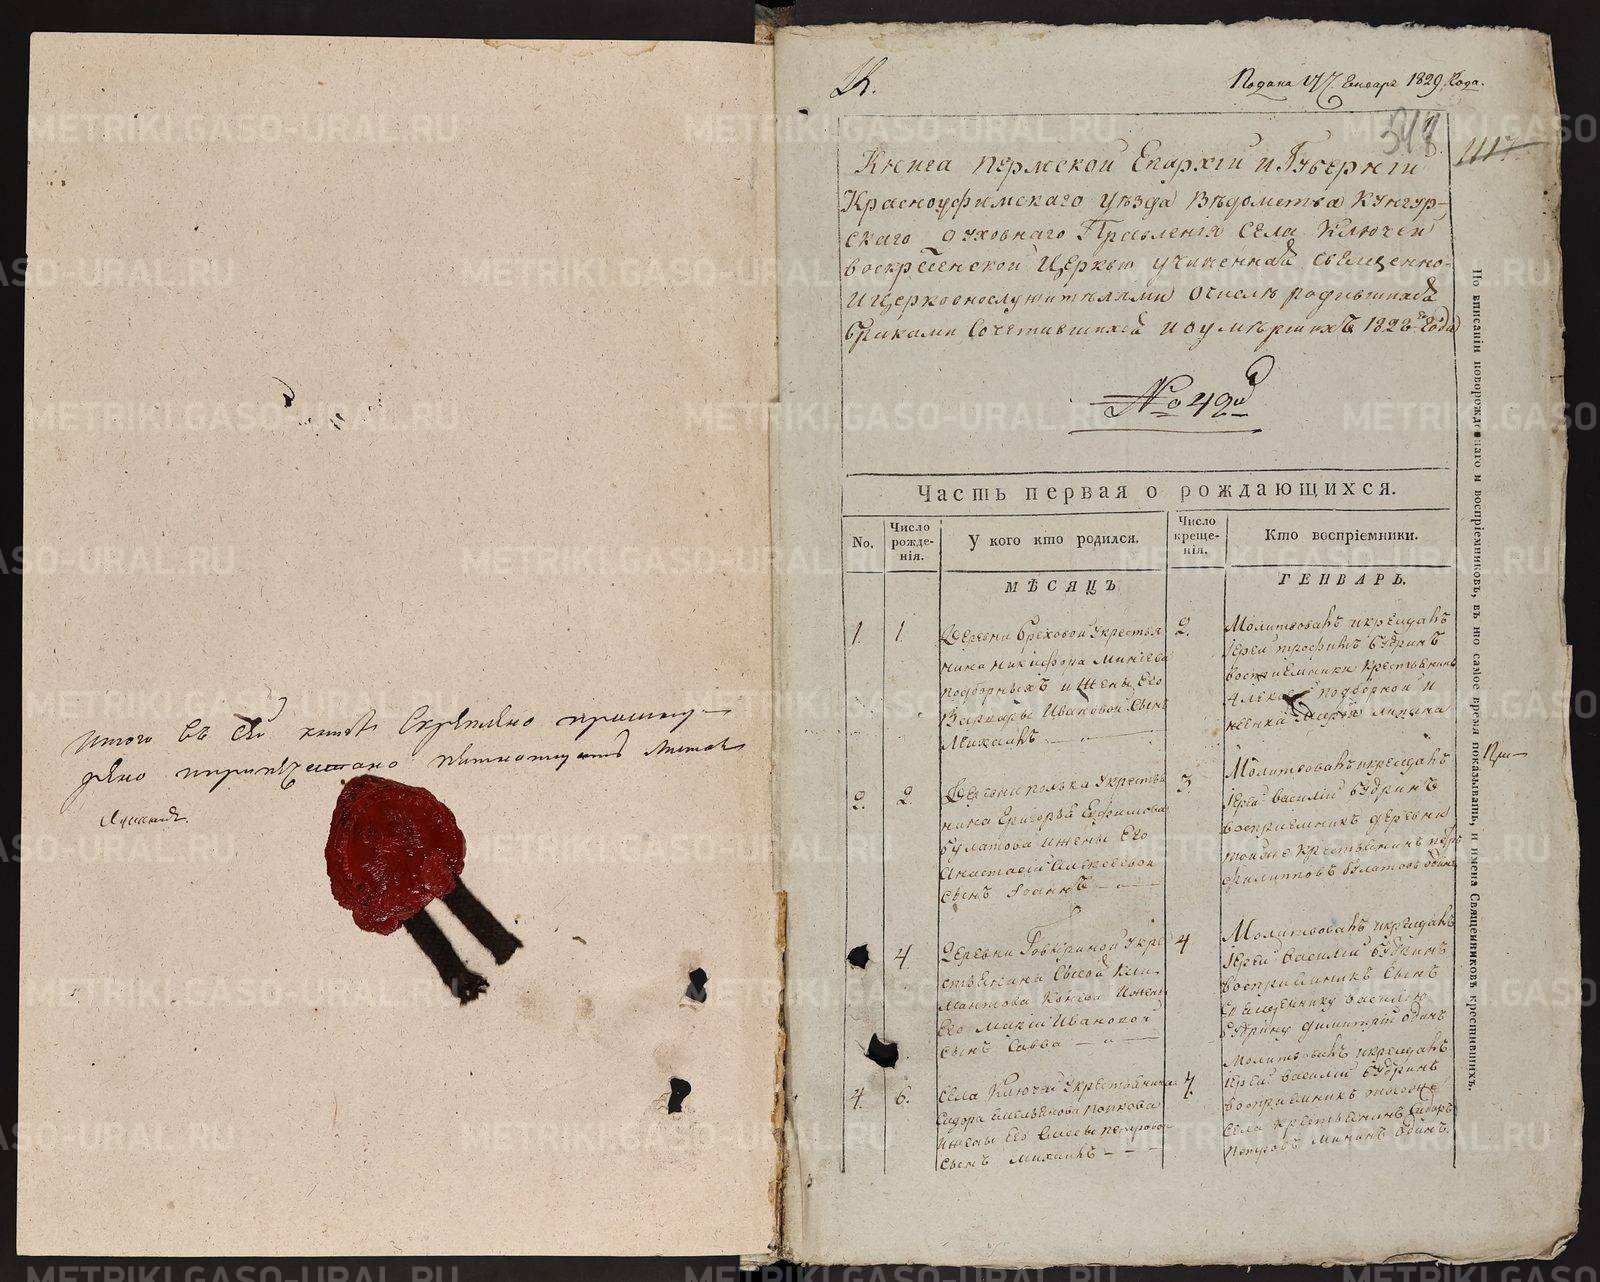 Итого въ сей книгѣ скрѣплено прошну-
рено
листовъ
К.
Подана 17. Генваря 1829 Года.
1117
Книга Пермской Епархіи и Губерніи
Красноуфимскаго уѣзда вѣдомства Кунгур-
скаго духовнаго Правленія села Ключей
воскресенской Церкви учиненная священно-
и церковнослужителями о числѣ родившихся
браками сочетавшихся и оумершихъ 1828 года
No 42й
Часть первая о рождающихся.
No.
Число рожде-нія.
У кого кто родился.
Число креще-нія.
Кто воспріемники.
МѢСЯЦЪ
ГЕНВАРЬ.
1.
1.
Деревни Бреховой укрестья
нина Никифора Минѣева
Подборныхъ и жены Его
Варвары Ивановой сынъ
Михаилъ
2.
Молитвовалъ икрещалъ
Іерей Трофимъ Будринъ
восприемники крестьянинъ
Алексѣй Подборной и
Марія Минина
2.
2.
Деревни Полька укрестья
нина Григорья Ефимова
Булатова ижены Его
Анастасіи Алексѣевой
сынъ Іоаннъ
3
Молитвовалъ икрещалъ
Іерей Василій Будринъ
восприемникъ деревни
тойже крестьянинъ Петръ
Филипповъ Булатовъ одинъ
4
Деревни Говыриной укре
стьянина Савы Кли
мантова Конева ижены
Его Маріи Ивановой
сынъ Савва
4
Молитвовалъ икрещалъ
Іерей Василій Будринъ
восприемникъ сынъ
Священнику Василію
Будрину Димитрій одинъ
4.
6.
Села Ключей укрестьянина
Сидора Емельянова Попкова
ижены Его Петровой
сынъ Михаилъ
7.
Молитвовалъ икрещалъ
Іерей Василій Будринъ
восприемникъ тогоже
села крестьянинъ Сидоръ
Петровъ Мининъ одинъ.
По вписаніи новорожденнаго и воспріемниковъ, въ то самое время показывать, и имена Священниковъ крестившихъ.
METRIKI.GASO-URAL.RU